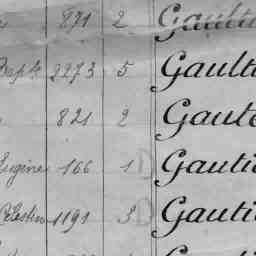 871 2 Gaultie
Bapte 2273 5 Gaulti
821 2 Gaute
Eugène 166 1 D Gautie
Célestin 1191 3 D Gautie